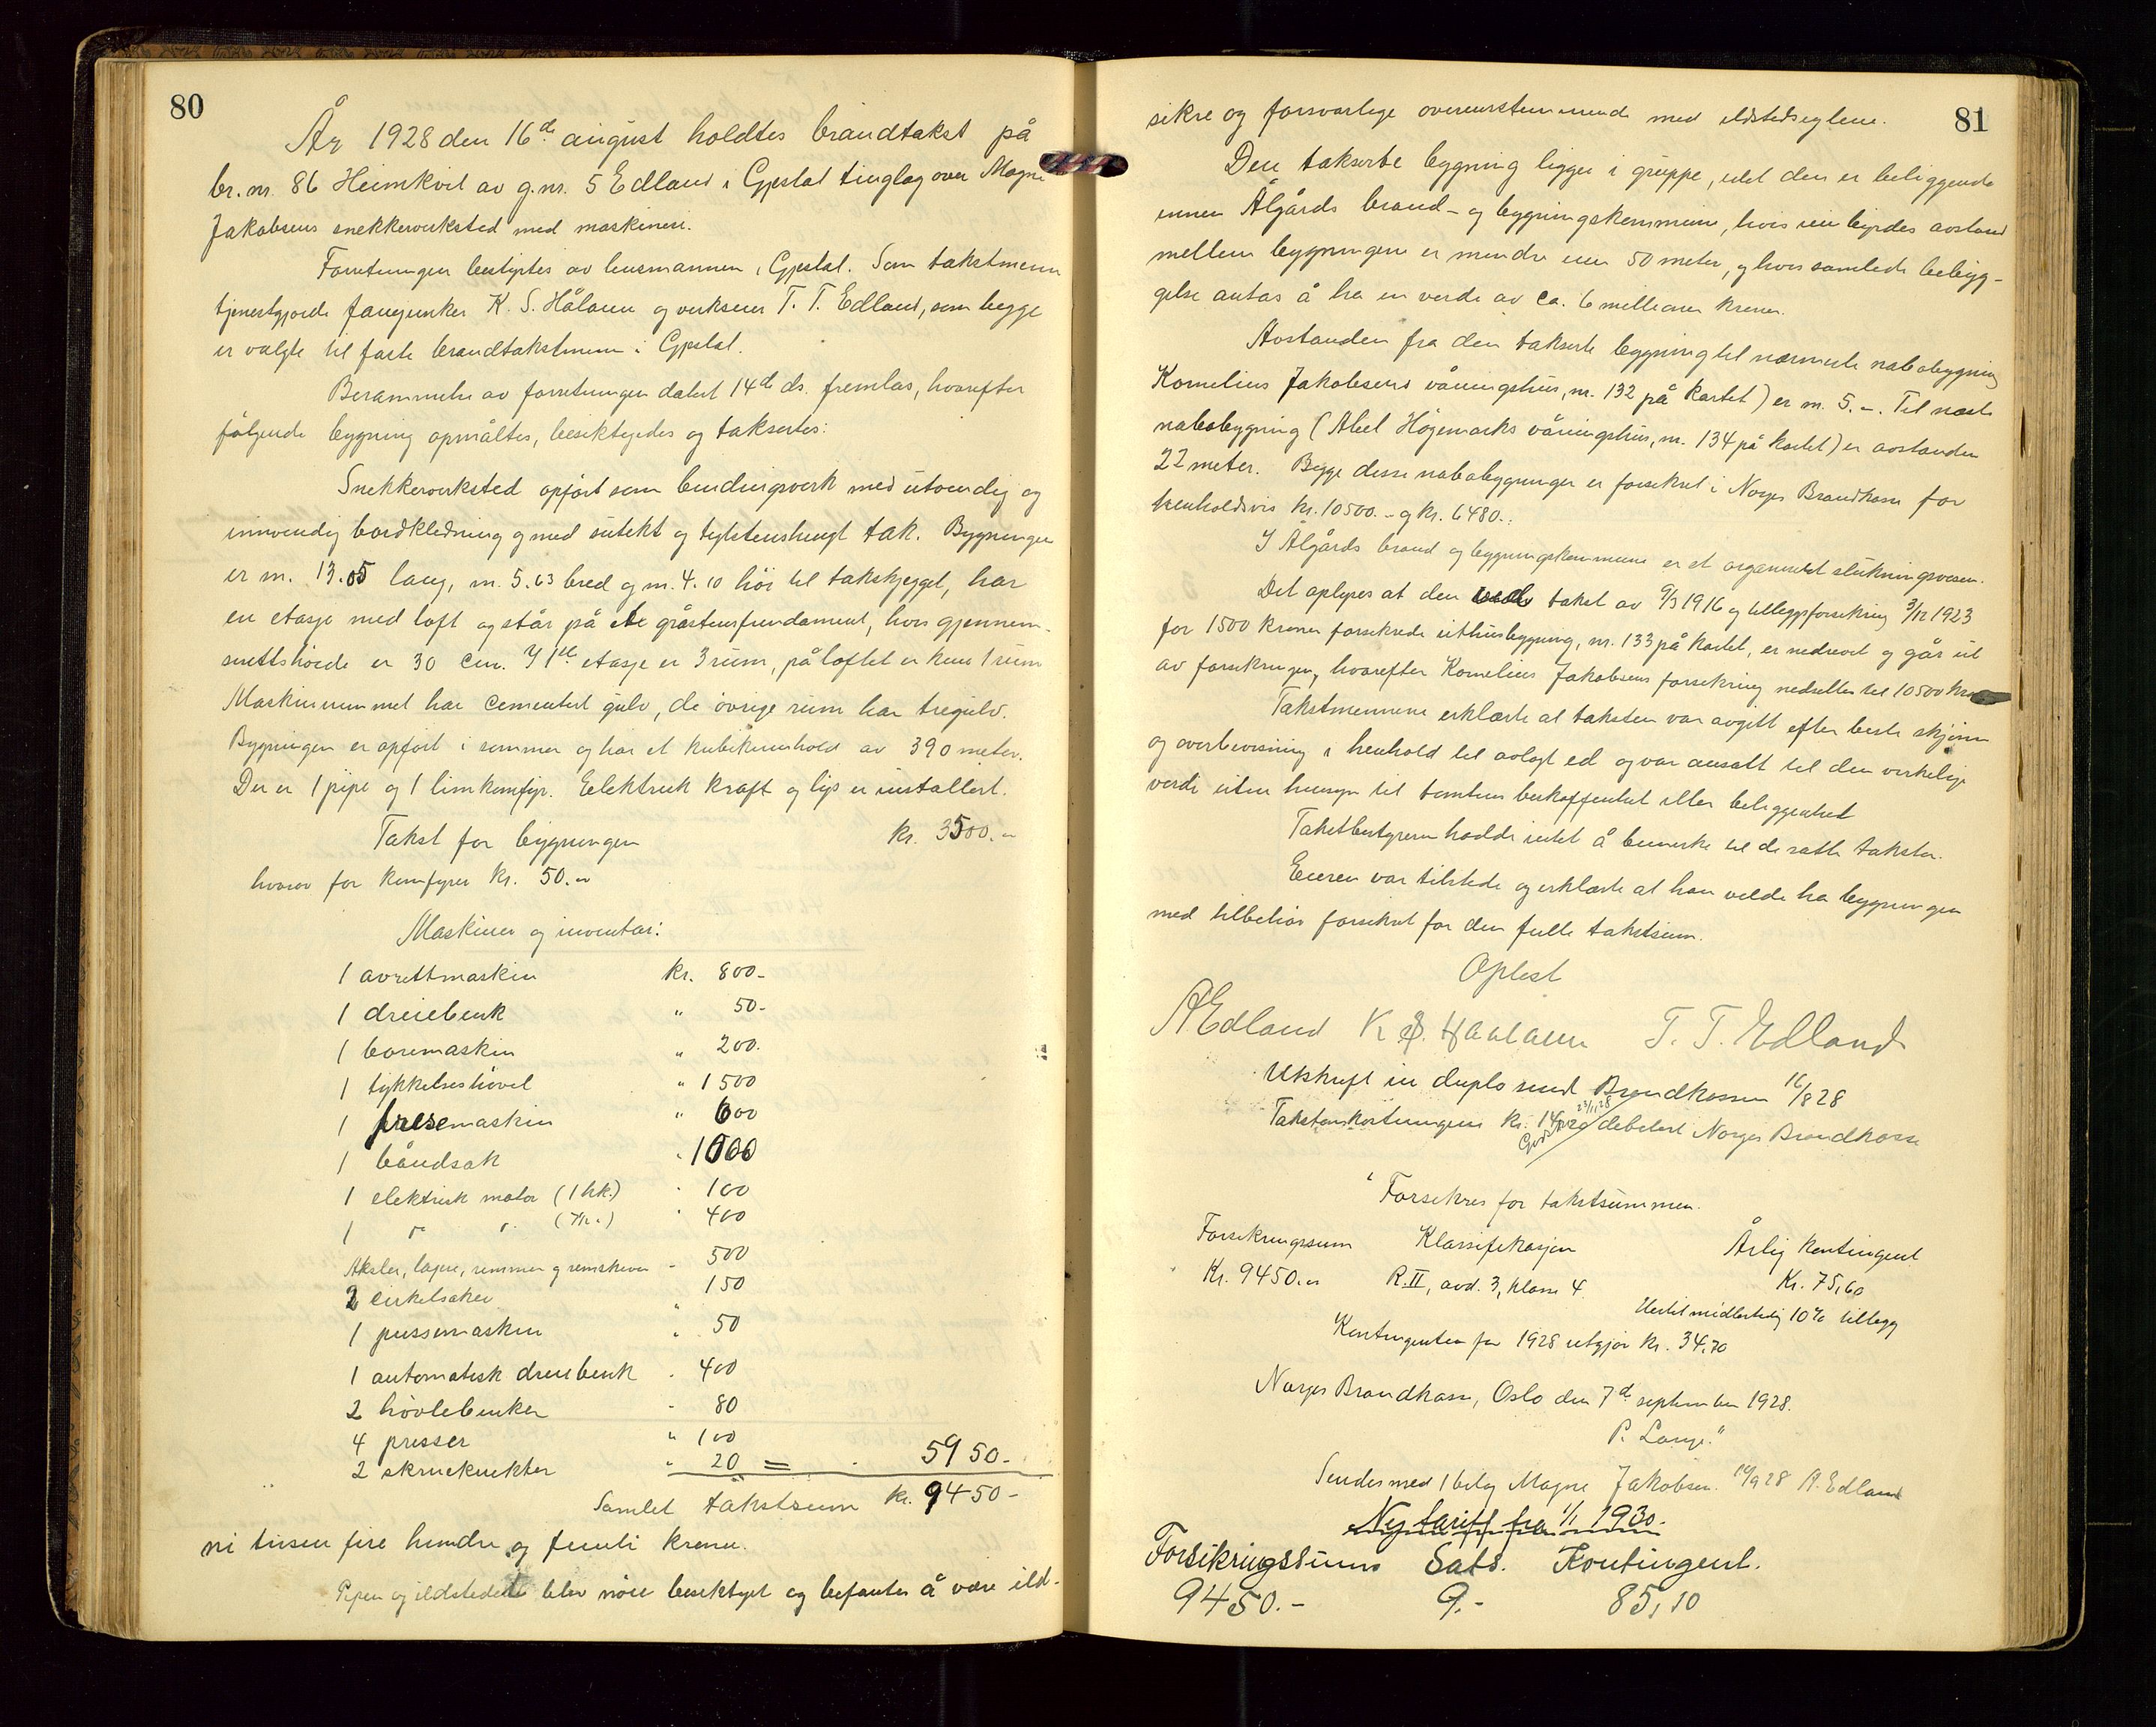 80
År 1928 den 16de august holdtes brandtakst på
br. nr. 86 Heimkvil av g.nr. 5 Edland i Gjestal tinglag over Magne
Jakobsens snekkerverksted med maskineri.
Forretningen bestyrtes av lensmannen i Gjestal. Som takstmenn
tjenestgjorde fanejunker K. S. Håland og verkseier T. T. Edland, som begge
er valgte til faste brandtakstmenn i Gjestal.
Berammelse av forretningen datert 14de ds. fremlas, hvorefter
følgende bygning opmåltes, besiktigedes og taksertes:
Snekkerverksted opført som bindingsverk med utvendig og
innvendig bordkledning og med sutekt og teglstenshengt tak. Bygningen
er m. 13.05 lang, m. 5.63 bred og m. 4.10 høi til takskjegget, har
en etasje med loft og står på et gråstensfundament, hvis gjennem-
snittshøide er 30 cm. I 1ste etasje er 3 rum, på loftet er kun 1 rum
Maskinrummet har cementert gulv, de øvrige rum har tregulv.
Bygningen er opført i sommer og har et kubikinnhold av 390 meter.
Der er 1 pipe og 1 limkomfyr. Elektrisk kraft og lys er installert.
Takst for bygningen kr. 3500.-
hvorav for komfyren kr. 50.-
Maskiner og inventar:
1 avrettmaskin kr. 800-
1 dreiebenk " 50-
1 boremaskin " 200.
1 tykkelseshøvel " 1500
1 fresemaskin " 600
1 båndsak " 1000
1 elektrisk motor (1 hk.) " 100
1 " " (7 hk.) " 400
Aksler, lagre, remmer og remskiver - 500
2 cirkelsaker 150
1 pussemaskin " 50
1 automatisk dreiebenk " 400
2 høvlebenker - 80
4 presser " 100
2 skrueknekter " 20 = 5950.-
Samlet takstsum kr. 9450-
ni tusen fire hundre og femti kroner.
Pipen og ildstedet blev nøie besiktiget og befantes å være ild-
81
sikre og forsvarlige overensstemmende med ildstedreglene.
Den takserte bygning ligger i gruppe, idet den er beliggende
innen Ålgårds brand- og bygningskommune, hvis innbyrdes avstand
mellem bygningene er mindre enn 50 meter, og hvis samlede bebygg-
gelse antas å ha en verde av ca. 6 millioner kroner.
Avstanden fra den takserte bygning til nærmeste nabobygning
Kornelius Jakobsens våningshus, nr. 132 på kartet) er m. 5.-. Til næste
nabobygning (Abel Høgemarks våningshus, nr. 134 på kartet) er avstanden
22 meter. Begge disse nabobygninger er forsikret i Norges Brandkasse for
henholdsvis kr. 10500.- og kr. 6480.-.
I Ålgårds brand og bygningskommune er et organisert slukningsvesen.
Det oplyses at den ved takst av 9/3 1916 og tilleggsforsikring 3/12 1923
for 1500 kroner forsikrede uthusbygning, nr. 133 på kartet, er nedrevet og går ut
av forsikringen, hvorefter Kornelius Jakobsens forsikring nedsettes til 10500 kroner
Takstmennene erklærte at taksten var avgitt efter beste skjønn
og overbevisning i henhold til avlagt ed og var ansatt til den virkelige
verdi uten hensyn til tomtens beskaffenhet eller beliggenhet
Takstbestyreren hadde intet å bemerke til de satte takster.
Eieren var tilstede og erklærte at han vilde ha bygningen
med tilbehør forsikret for den fulle takstsum.
Oplest
A Edland K S. Haaland T. T. Edland
Utskrift in duplo sendt Brandkassen 16/8 28
Takstomkostningene kr. debitert Norges Brandkasse
23/11 28
"Forsikres for takstsummen.
Forsikringssum Klassifikasjon Årlig kontingent
Kr. 9450.- R. II, avd. 3, klasse 4. Kr. 75,60
Hertil midlertidig 10% tillegg
Kontingenten for 1928 utgjør kr. 34,70
Norges Brandkasse, Oslo den 7de september 1928.
P. Lange."
Sendes med 1 bilag Magne Jakobsen. 10/9 28 A. Edland
Ny tariff fra 1/1 1930.
Forsikringssum Sats. Kontingent.
9450.- 9.- 85,10